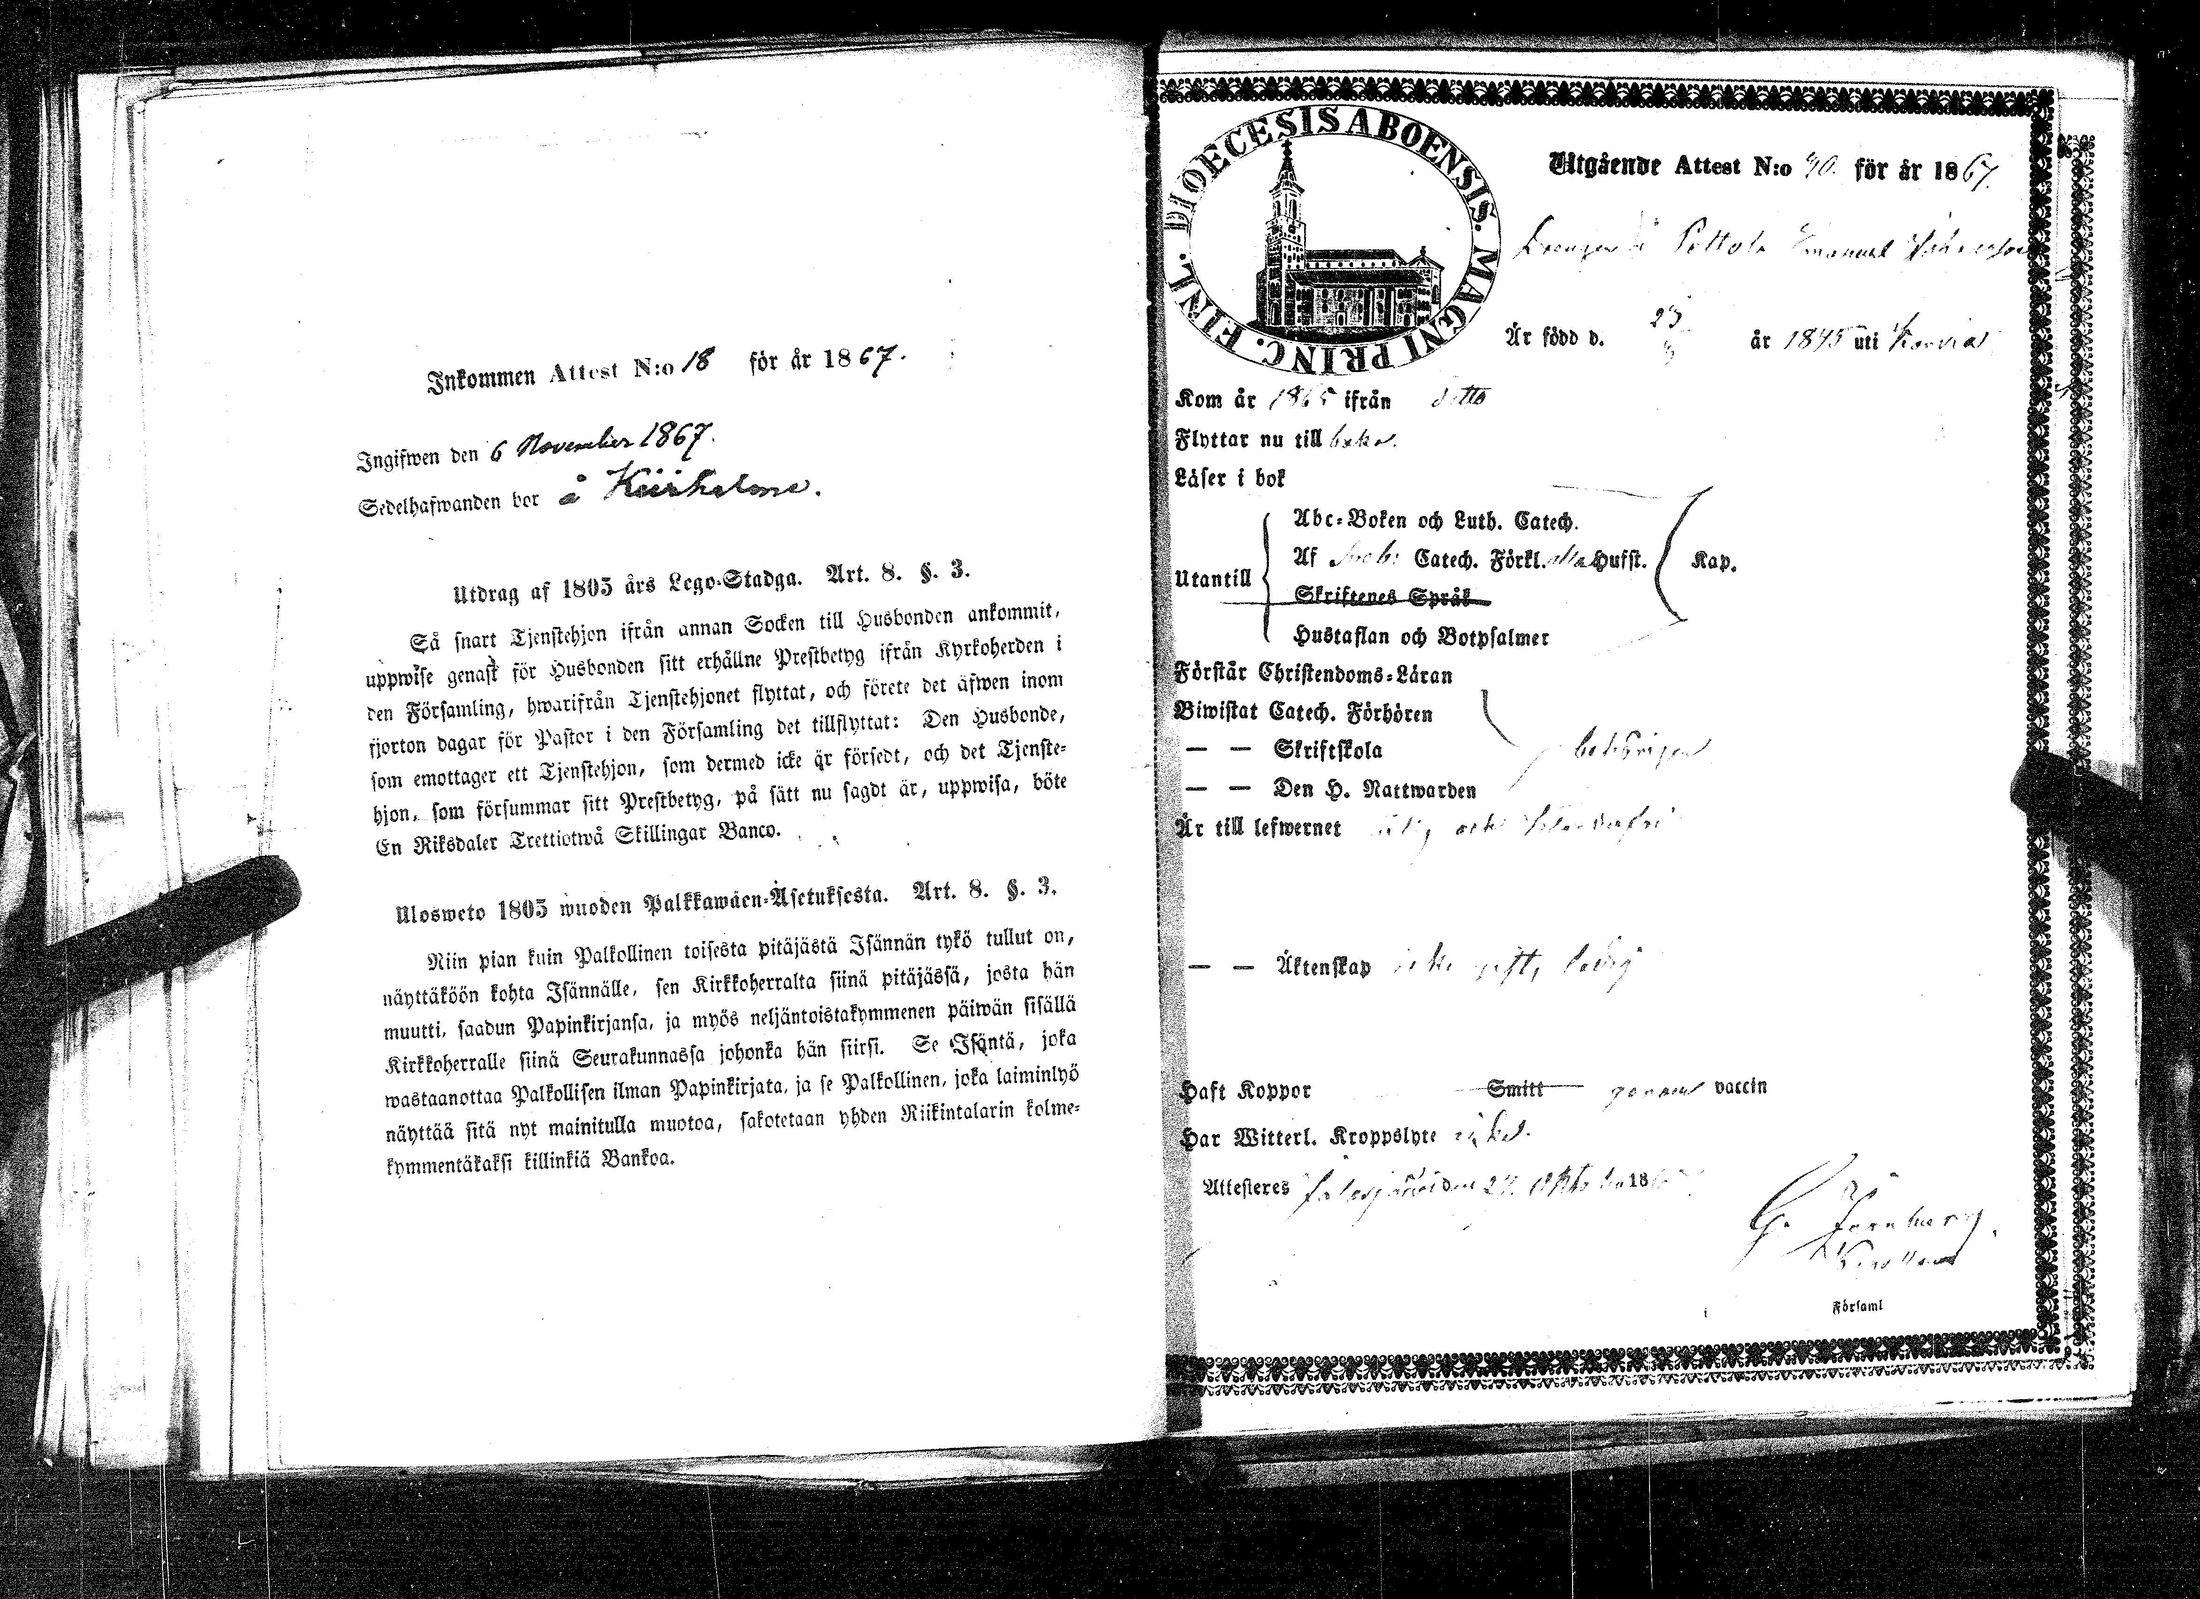 Inkommen Attest N:o 18 för år 1867.
Ingifwen den 6 November 1867.
Sedelhafwanden bor å Kiirholma.
Utdrag af 1805 års Lego-Stadga. Art. 8. §. 3.
Så snart Tjenstehjon ifrån annan Socken till Husbonden ankommit,
uppwise genast för Husbonden sitt erhållne Prestbetyg ifrån Kyrkoherden i
den Församling, hwarifrån Tjenstehjonet flyttat, och förete det äfwen inom
fjorton dagar för Pastor i den Församling det tillflyttat: Den Husbonde,
som emottager ett Tjenstehjon, som dermed icke är försedt, och det Tjenste-
hjon, som försummar sitt Prestbetyg, på sätt nu sagdt är, uppwisa, böte
En Riksdaler Trettiotwå Skillingar Banco.
Ulosweto 1805 wuoden Palkkawäen-Asetuksesta. Art. 8. §. 3.
Niin pian kuin Palkollinen toisesta pitäjästä Isännän tykö tullut on,
näyttäköön kohta Isännälle, sen Kirkkoherralta siinä pitäjässä, josta hän
muutti, saadun Papinkirjansa, ja myös neljäntoistakymmenen päiwän sisällä
Kirkkoherralle siinä Seurakunnassa johonka hän siirsi. Se Isäntä, joka
wastaanottaa Palkollisen ilman Papinkirjata, ja se Palkollinen, joka laiminlyö
näyttää sitä nyt mainitulla muotoa, sakotetaan yhden Riikintalarin kolme-
kymmentäkaksi killinkiä Bankoa.
DIOECESIS ABOENSIS. MAGNI PRINC. FINL.
Utgående Attest N:o 40. för år 1867.
Drengen å Pottola Emanuel
Är född d. 23 år 1845 uti
Kom år 1865 ifrån ditto
Flyttar nu till
Läser i bok
Abc-Boken och Luth. Catech.
Af Catech. Förkl. alla Hufst. Kap.
Utantill
Skriftenes Språk
Hustaflan och Botpsalmer
Förstår Christendoms-Läran
Biwistat Catech. Förhören
— — Skriftskola behörigen
— — Den H. Nattwarden
Är till lefwernet och
— — Äktenskap icke gift, ledig
Haft Koppor Smitt genom vaccin
Har Witterl. Kroppslyte
Attesteres den 27. Oktober 186
G.
Församl